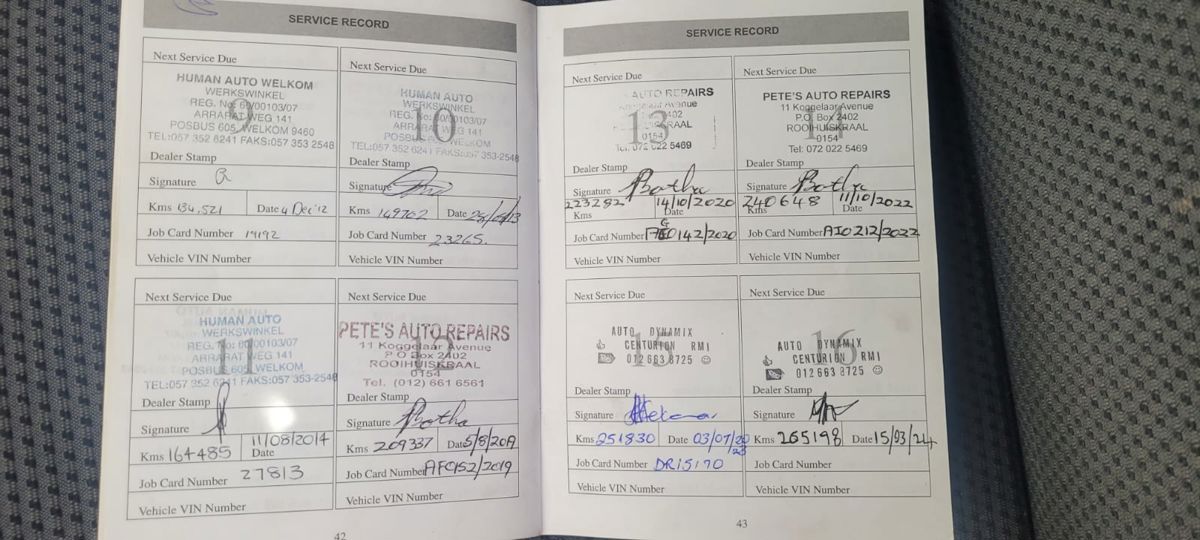 SERVICE RECORD
Next Service Due
HUMAN AUTO WELKOM
WERKSWINKEL
REG. No: 60/00103/07
ARRARAT WEG 141
POSBUS 605, WELKOM 9460
TEL:057 352 6241 FAKS:057 353 2548
9
Dealer Stamp
Signature
Kms 134,521 Date 4 Dec '12
Job Card Number 19192
Vehicle VIN Number
Next Service Due
HUMAN AUTO
WERKSWINKEL
REG. No: 60/00103/07
ARRARAT WEG 141
POSBUS 605 WELKOM
TEL:057 352 6241 FAKS:057 353-2548
10
Dealer Stamp
Signature
Kms 149702 Date
Job Card Number 23265.
Vehicle VIN Number
Next Service Due
HUMAN AUTO
WERKSWINKEL
REG. No: 60/00103/07
ARRARAT WEG 141
POSBUS 605 WELKOM
TEL:057 352 6241 FAKS:057 353-2548
11
Dealer Stamp
Signature
Kms 164485 Date 11/08/2014
Job Card Number 27813
Vehicle VIN Number
Next Service Due
PETE'S AUTO REPAIRS
11 Koggelaar Avenue
P O Box 2402
ROOIHUISKRAAL
0154
Tel. (012) 661 6561
12
Dealer Stamp
Signature Botha
Kms 209337 Date 5/8/2019
Job Card Number AF0152/2019
Vehicle VIN Number
42
SERVICE RECORD
Next Service Due
AUTO REPAIRS
Avenue
2402
KRAAL
0154
Tel. 072 022 5469
13
Dealer Stamp
Signature Botha
Kms 223282 Date 14/10/2020
Job Card Number 142/2020
Vehicle VIN Number
Next Service Due
PETE'S AUTO REPAIRS
11 Koggelaar Avenue
P.O. Box 2402
ROOIHUISKRAAL
0154
Tel: 072 022 5469
Dealer Stamp
Signature Botha
Kms 240648 Date 11/10/2022
Job Card Number AIO212/2022
Vehicle VIN Number
Next Service Due
AUTO DYNAMIX
CENTURION RMI
012 663 8725
Dealer Stamp
Signature
Kms 251830 Date 03/07/2023
Job Card Number DR15170
Vehicle VIN Number
Next Service Due
AUTO DYNAMIX
CENTURION RMI
012 663 8725
16
Dealer Stamp
Signature
Kms 265198 Date 15/03/24
Job Card Number
Vehicle VIN Number
43